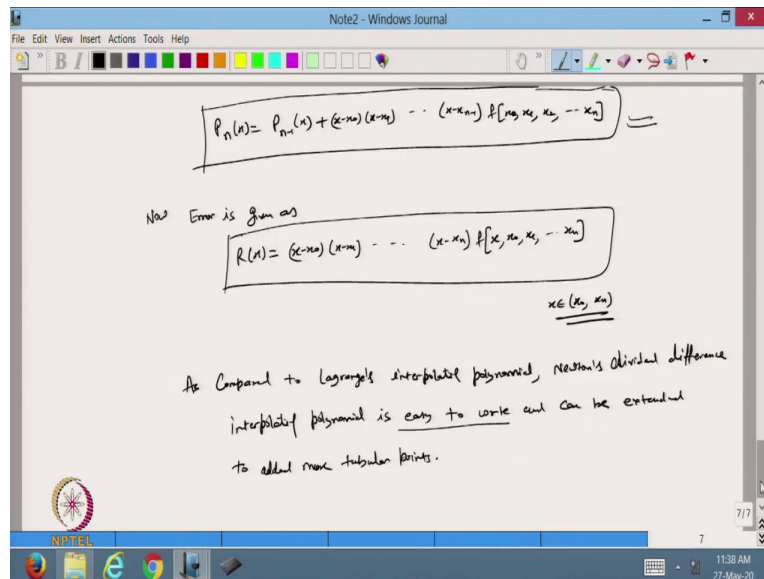 Note2 - Windows Journal
File Edit View Insert Actions Tools Help
B I
Pn(x) = Pn-1(x) + (x-x0)(x-x1) -- (x-xn-1) f[x0, x1, x2, -- xn]
Now Error is given as
R(x) = (x-x0)(x-x1) - - -- (x-xn) f[x, x0, x1, -- xn]
x∈(x0, xn)
As Compared to Lagrange's interpolatif polynomial, Newton's divided difference
interpolatif polynomial is easy to work and can be extended
to added more tabular points.
NPTEL
7/7
7
11:38 AM
27-May-20